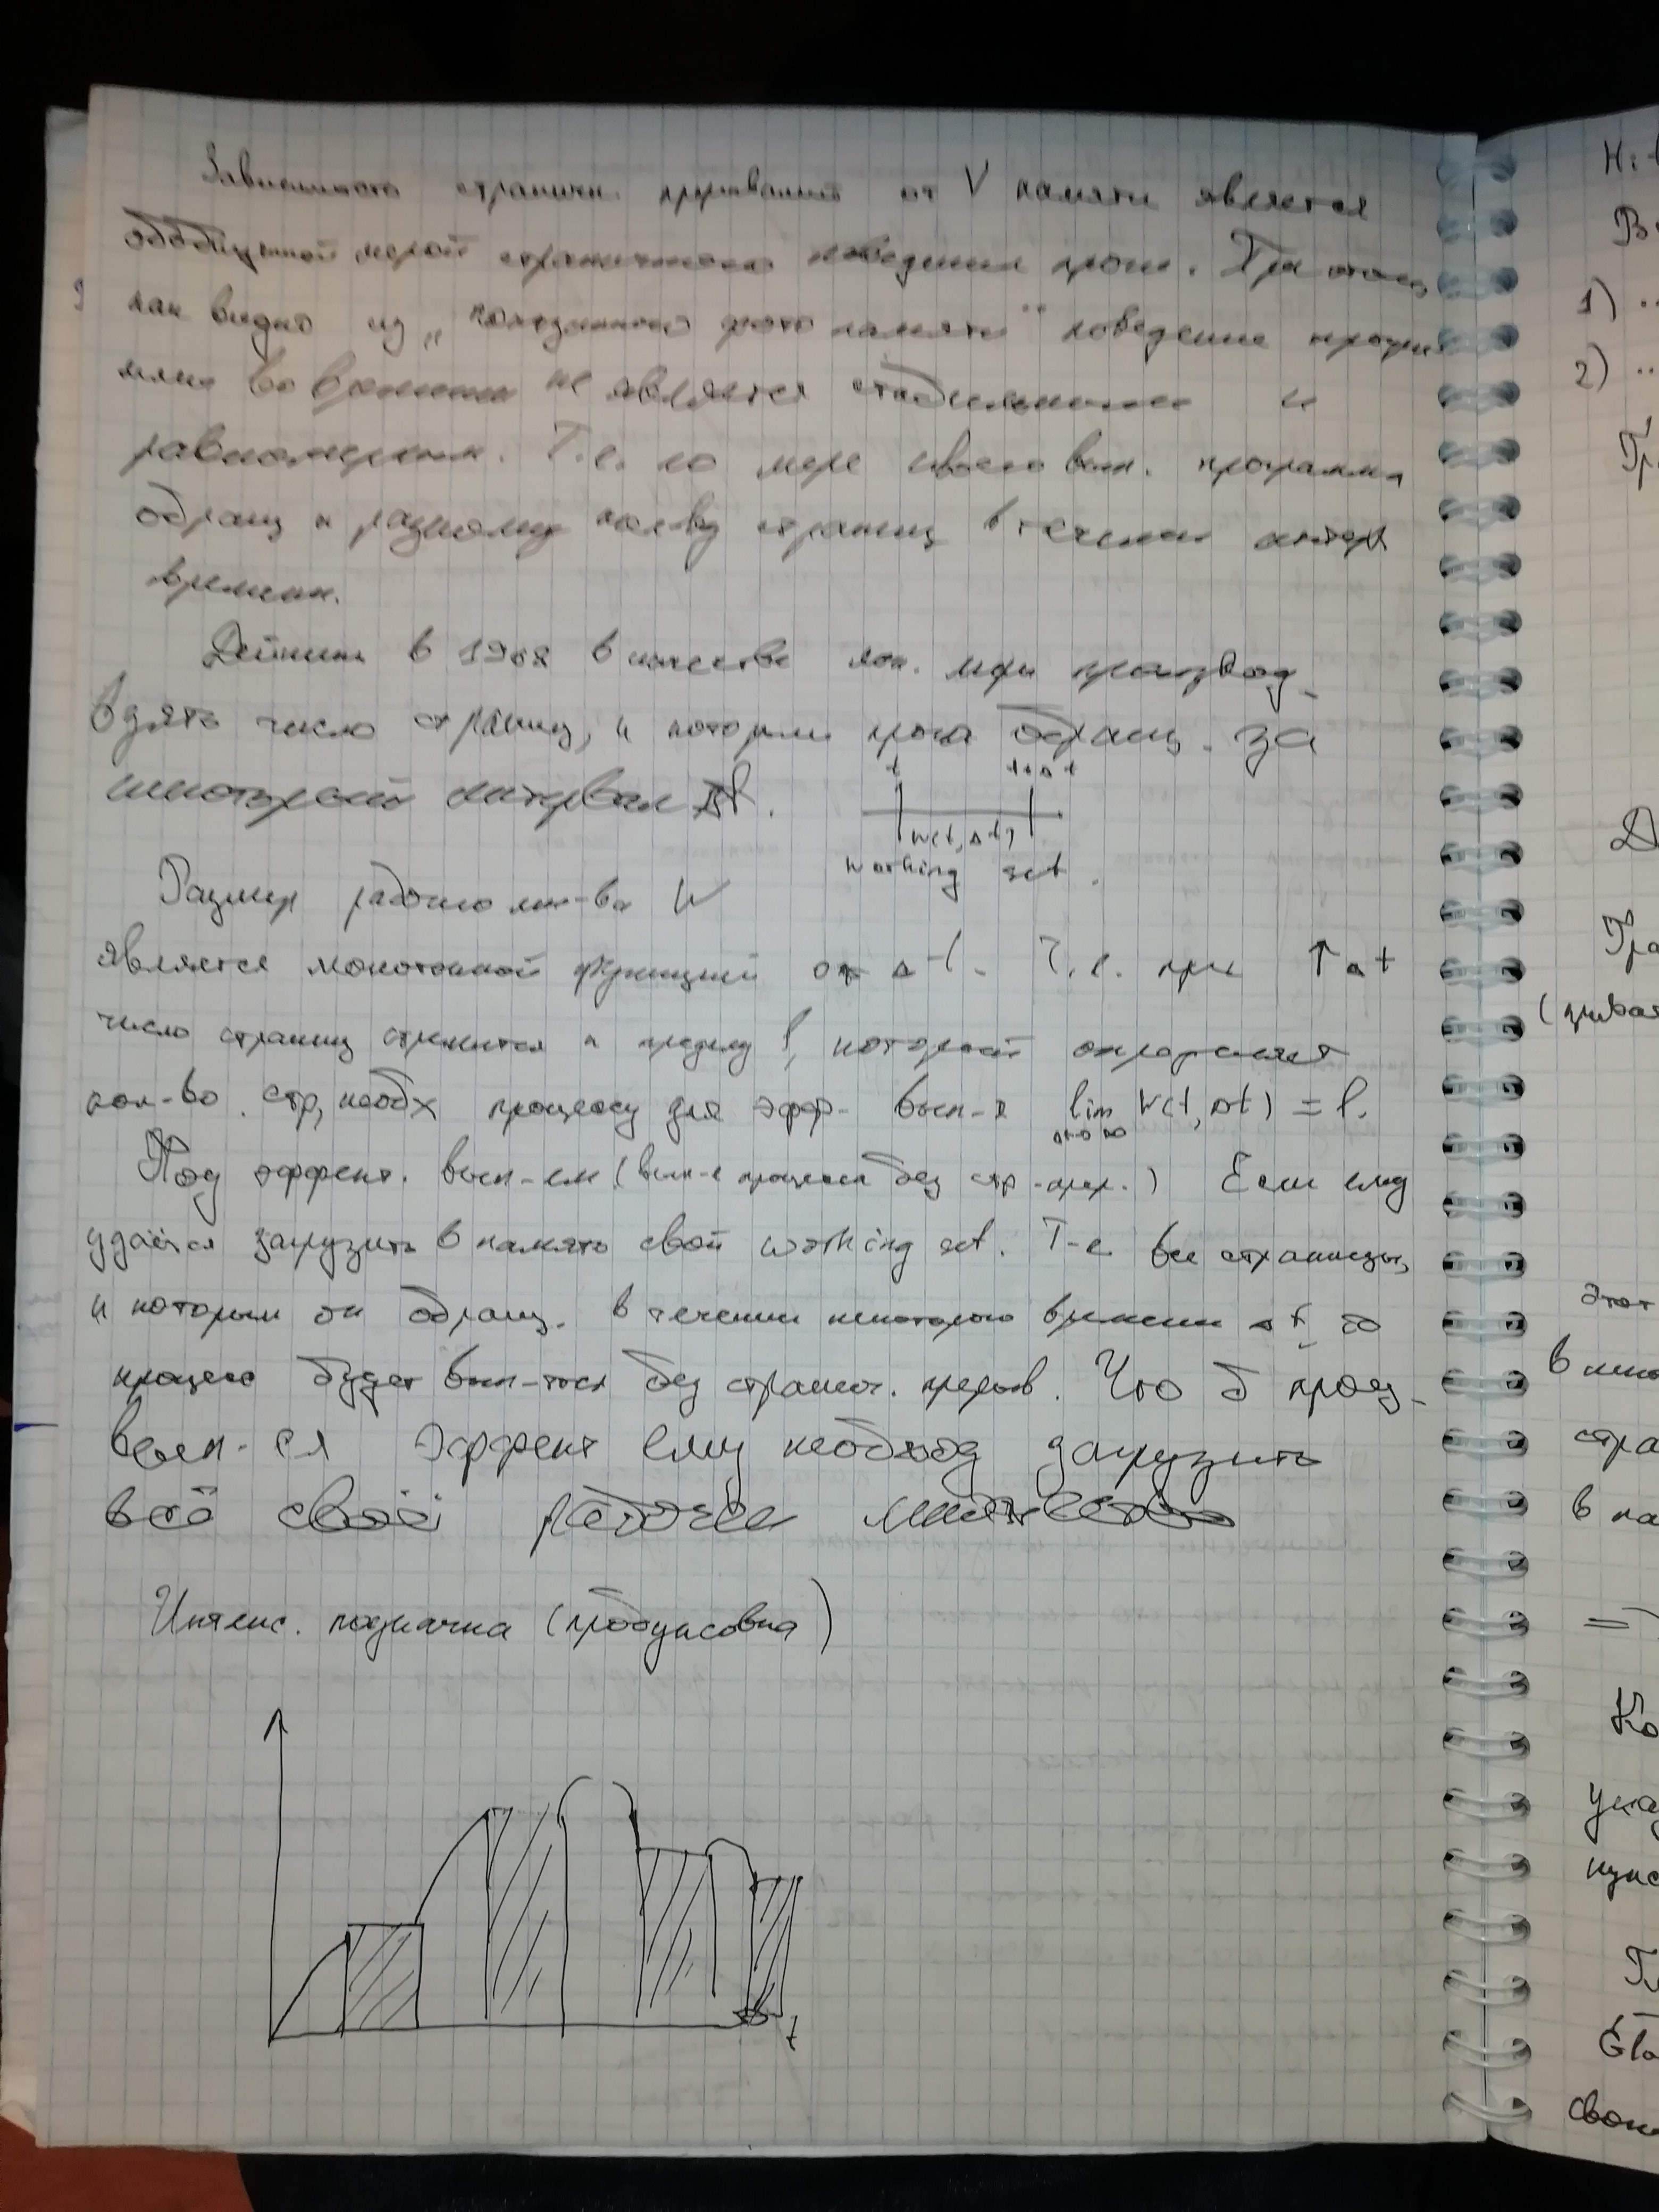 Зависимость страничн. прерываний от V памяти является
обобщенной мерой страничного поведения прогр. При этом,
как видно из „ фото памяти" поведение програ
ммы во времени не является стабильным и
равномерным. Т.е. по мере своего вып. программа
обращ к разному кол-ву страниц в течении интерв
времени.
Деннинг в 1968 в качестве лок. меры производ.
взять число страниц, к которым прога обращ. за
некоторый интервал Δt.
t t+Δt
W(t, Δt)
working set.
Размер рабочего мн-ва W
является монотонной функцией от Δt. Т.е. при ↑Δt
число страниц стремится к пределу l, который определяет
кол-во стр, необх процессу для эфф. вып-я lim W(t, Δt) = l.
Δt→∞
Под эффект. вып-ем (вып-е процесса без стр-прер.) Если ему
удаётся загрузить в память свой working set. Т-е все страницы,
к которым он обращ. в течении некоторого времени Δt, то
процесс будет вып-тся без странич. прерыв. Что б проц.
вып-ся эффект ему необход загрузить
всё своё рабочее множество
Интенс. подкачка (пробуксовка)
t
Н:
В
1) ..
2) ..
Д
Этот
стра
в па
=>
Ко
Gl
свои